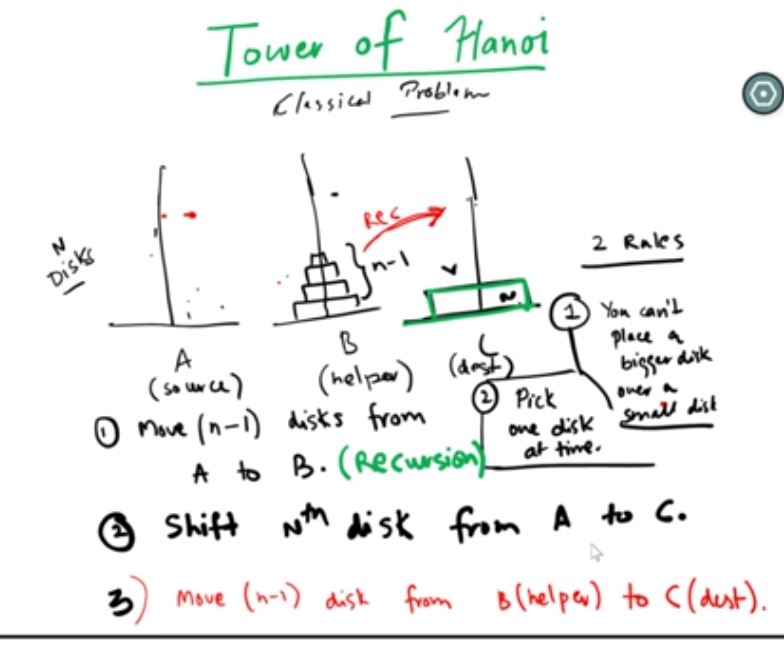 Tower of Hanoi
Classical Problem
N
Disks
REC
n-1
N
2 Rules
A
(source)
B
(helper)
C
(dest)
① You can't
place a
bigger disk
over a
small disk
② Pick
one disk
at time.
① Move (n-1) disks from
A to B. (Recursion)
② Shift Nth disk from A to C.
3) Move (n-1) disk from B(helper) to C(dest).